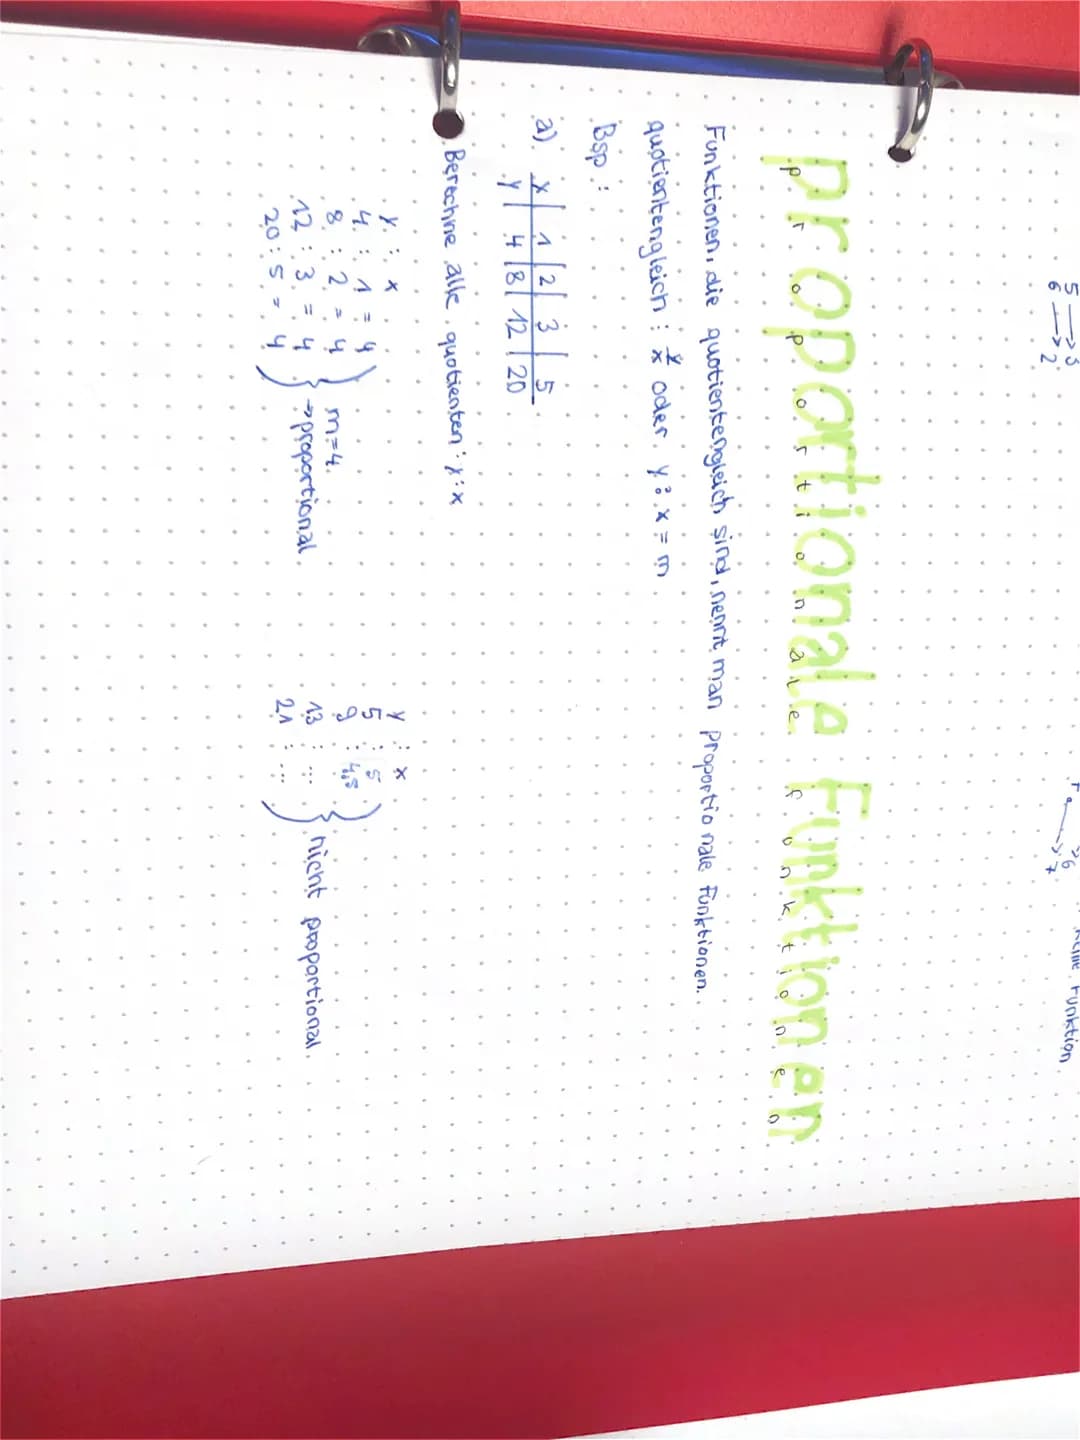 5 → 3
6 → 2
6
7
Funktion
proportionale Funktionen
proportionale Funktionen
Funktionen, die quotientengleich sind, nennt man proportionale Funktionen.
quotientengleich : y/x oder y : x = m
Bsp :
a) x | 1 | 2 | 3 | 5
y | 4 | 8 | 12 | 20
Berechne alle quotienten : y : x
y : x
4 : 1 = 4
8 : 2 = 4
12 : 3 = 4
20 : 5 = 4
m = 4
→ proportional
y : x
5 : 5
9 : 4,5
13 : ...
21 : ...
nicht proportional